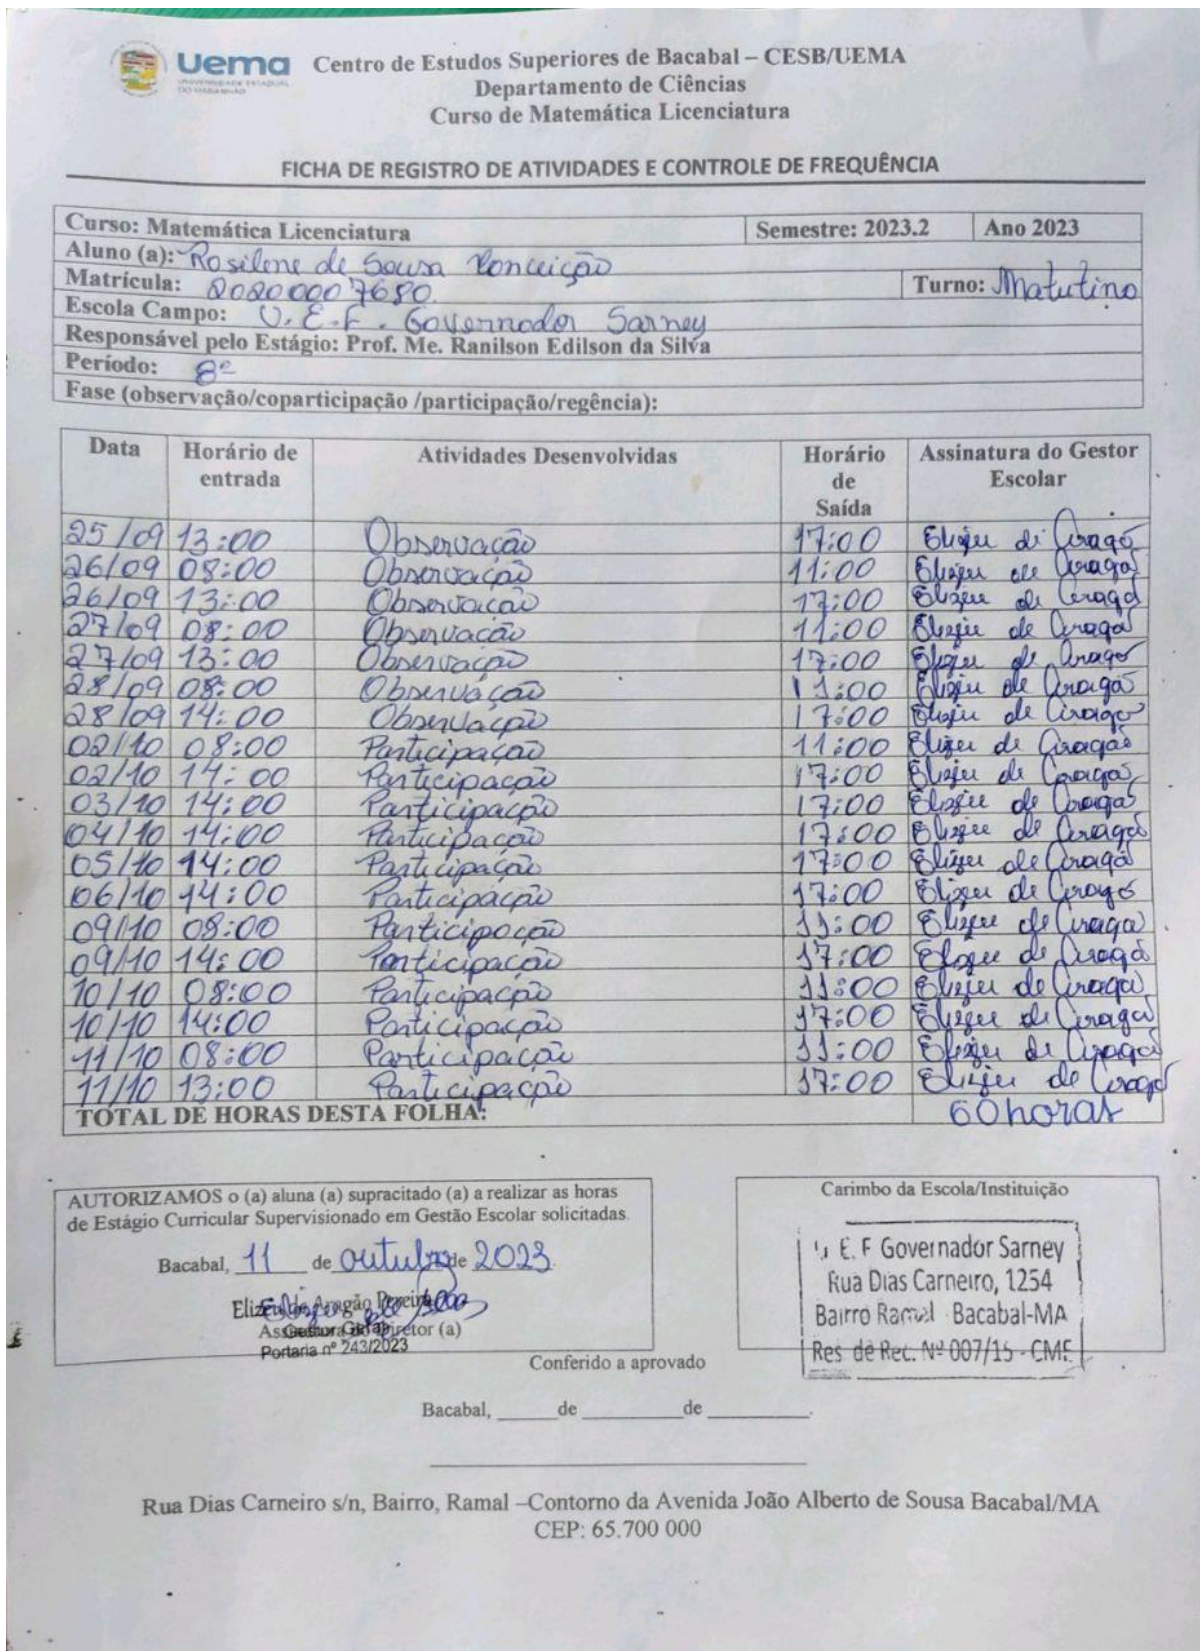 Uema Centro de Estudos Superiores de Bacabal – CESB/UEMA
UNIVERSIDADE ESTADUAL
DO MARANHÃO
Departamento de Ciências
Curso de Matemática Licenciatura
FICHA DE REGISTRO DE ATIVIDADES E CONTROLE DE FREQUÊNCIA
Curso: Matemática Licenciatura Semestre: 2023.2 Ano 2023
Aluno (a): Rosilene de Sousa Conceição
Matrícula: 20200007680 Turno: Matutino
Escola Campo: U.E.F. Governador Sarney
Responsável pelo Estágio: Prof. Me. Ranilson Edilson da Silva
Período: 8º
Fase (observação/coparticipação /participação/regência):
Data Horário de entrada Atividades Desenvolvidas Horário de Saída Assinatura do Gestor Escolar
25/09 13:00 Observação 17:00 Elizeu de Aragão
26/09 08:00 Observação 11:00 Elizeu de Aragão
26/09 13:00 Observação 17:00 Elizeu de Aragão
27/09 08:00 Observação 11:00 Elizeu de Aragão
27/09 13:00 Observação 17:00 Elizeu de Aragão
28/09 08:00 Observação 11:00 Elizeu de Aragão
28/09 14:00 Observação 17:00 Elizeu de Aragão
02/10 08:00 Participação 11:00 Elizeu de Aragão
02/10 14:00 Participação 17:00 Elizeu de Aragão
03/10 14:00 Participação 17:00 Elizeu de Aragão
04/10 14:00 Participação 17:00 Elizeu de Aragão
05/10 14:00 Participação 17:00 Elizeu de Aragão
06/10 14:00 Participação 17:00 Elizeu de Aragão
09/10 08:00 Participação 11:00 Elizeu de Aragão
09/10 14:00 Participação 17:00 Elizeu de Aragão
10/10 08:00 Participação 11:00 Elizeu de Aragão
10/10 14:00 Participação 17:00 Elizeu de Aragão
11/10 08:00 Participação 11:00 Elizeu de Aragão
11/10 13:00 Participação 17:00 Elizeu de Aragão
TOTAL DE HORAS DESTA FOLHA: 60 horas
AUTORIZAMOS o (a) aluna (a) supracitado (a) a realizar as horas
de Estágio Curricular Supervisionado em Gestão Escolar solicitadas.
Bacabal, 11 de outubro de 2023
Elizeu de Aragão Pereira
Assinatura do Diretor (a)
Gestora Geral
Portaria nº 243/2023
Carimbo da Escola/Instituição
U. E. F Governador Sarney
Rua Dias Carneiro, 1254
Bairro Ramal - Bacabal-MA
Res. de Rec. Nº 007/15 - CME
Conferido a aprovado
Bacabal, _____de _________de _________.
Rua Dias Carneiro s/n, Bairro, Ramal –Contorno da Avenida João Alberto de Sousa Bacabal/MA
CEP: 65.700 000